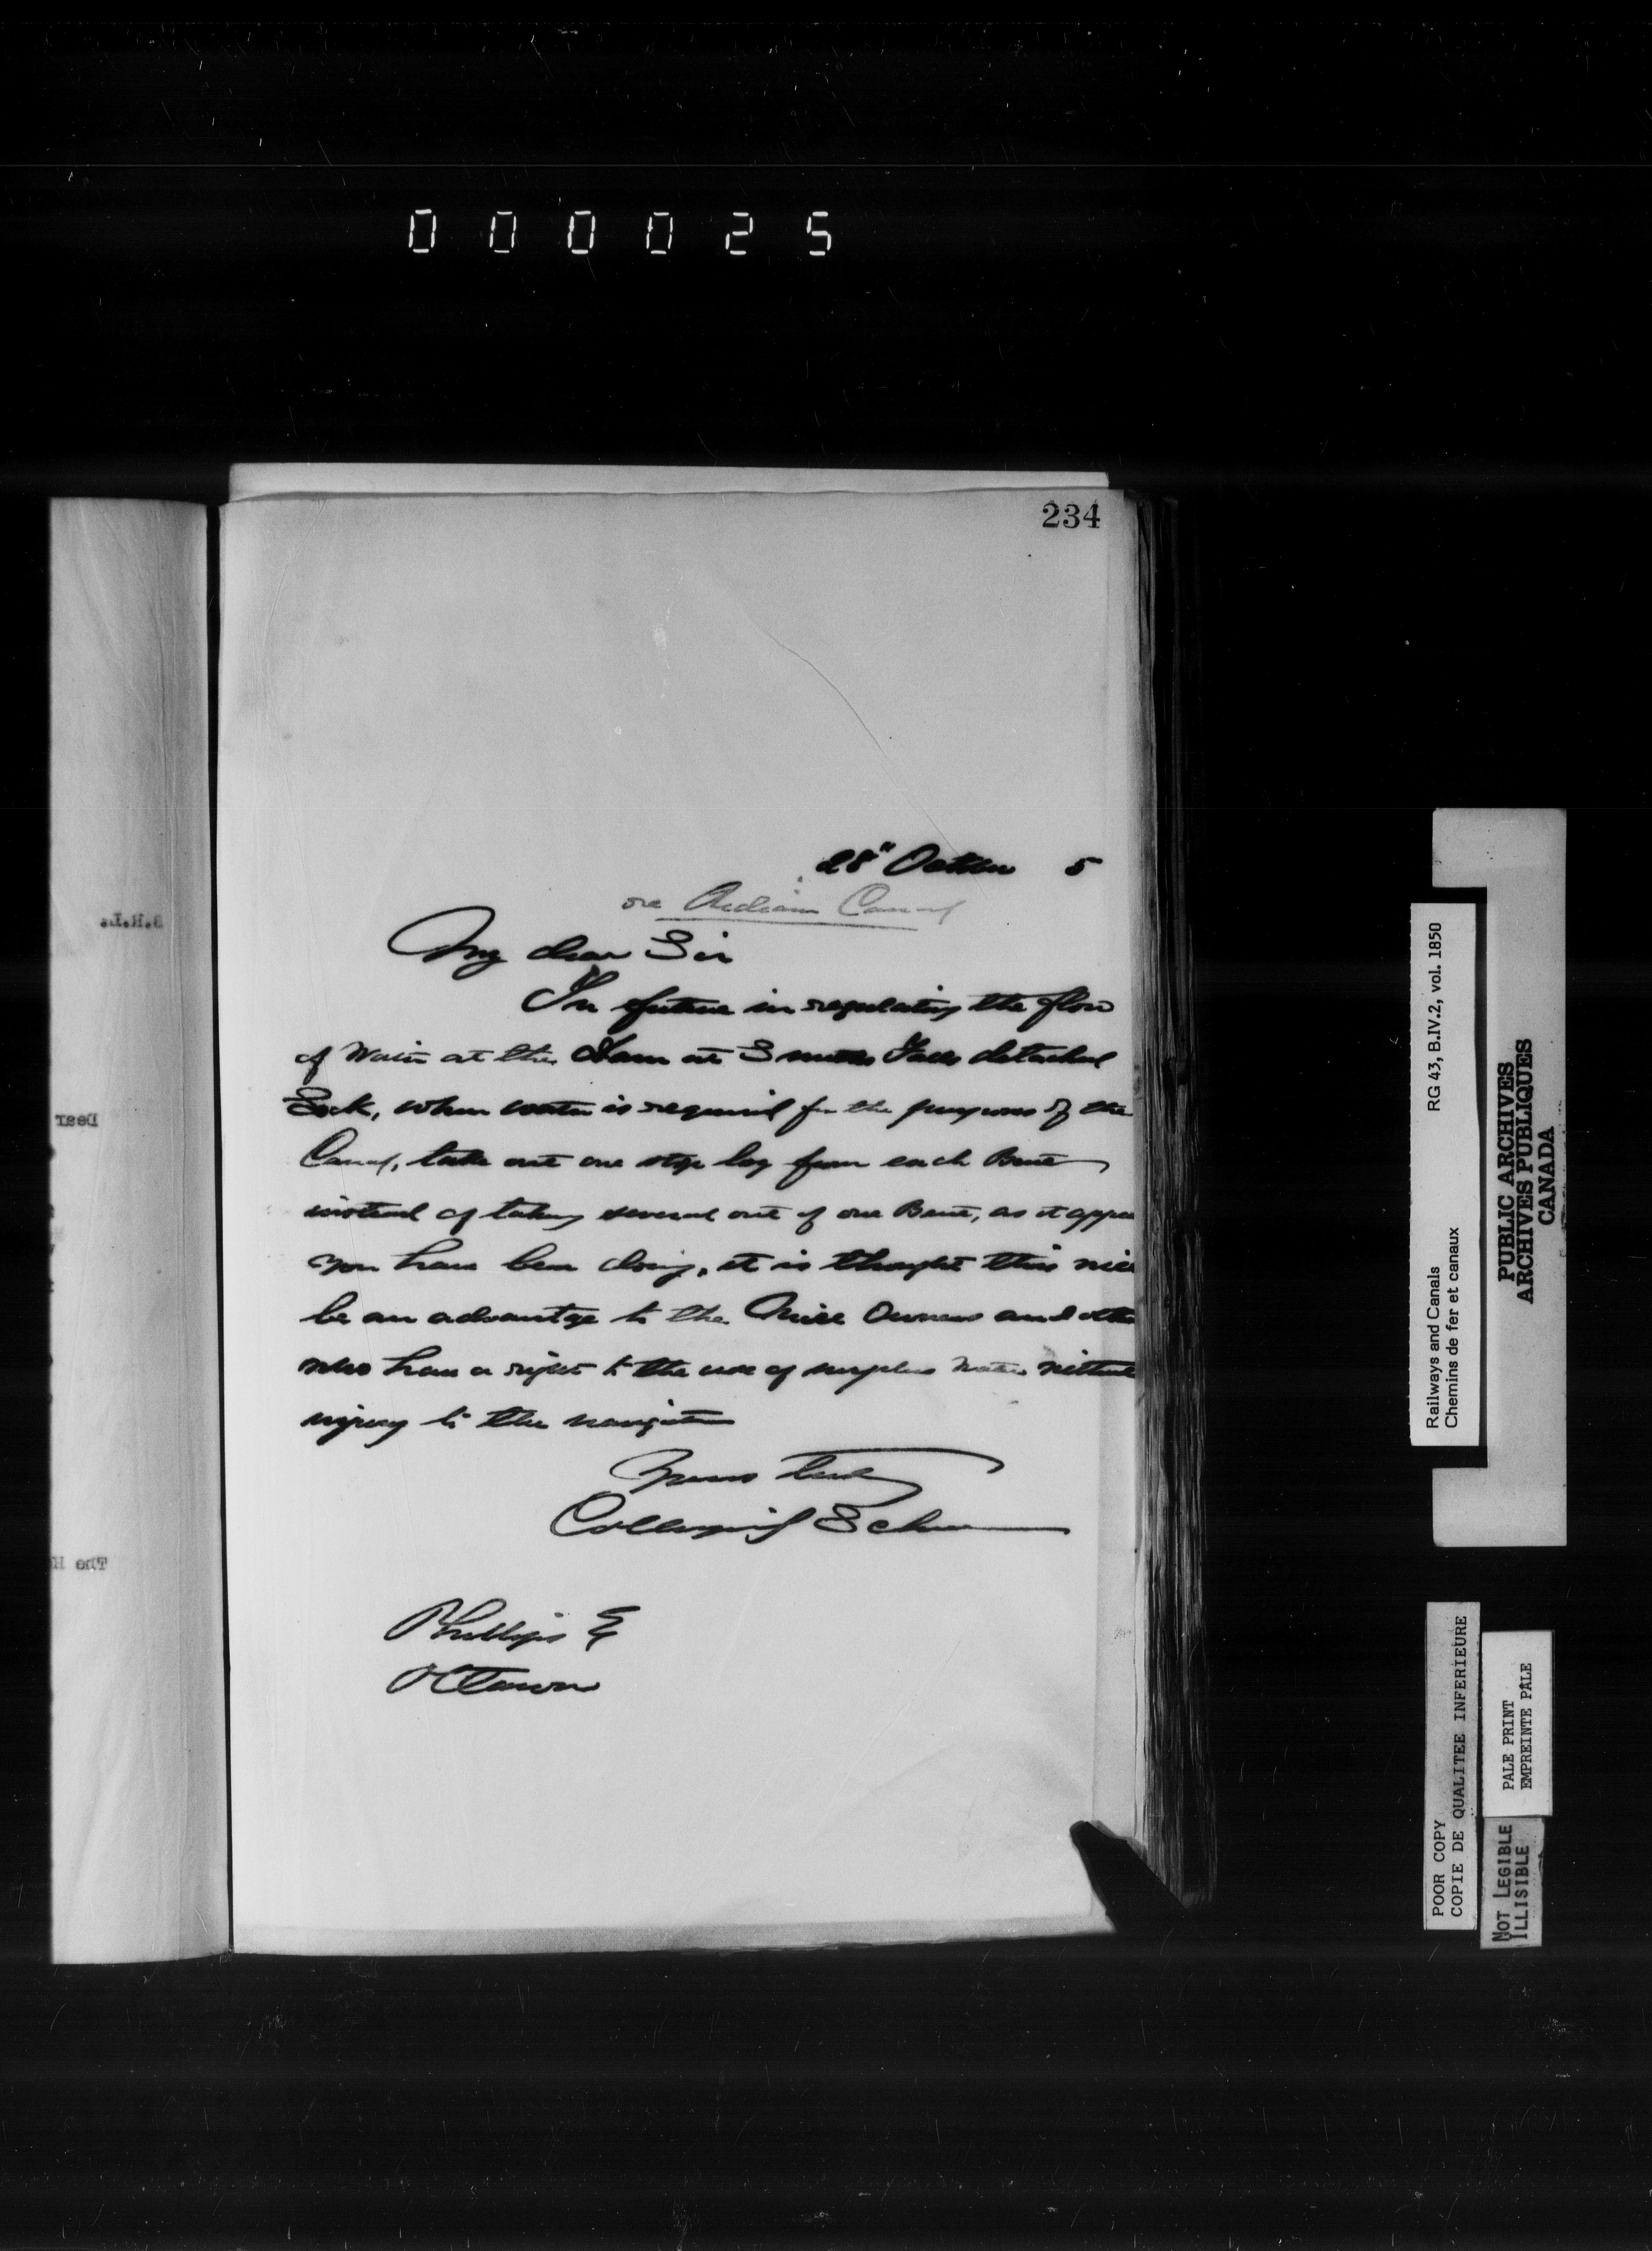 000025
234
28" October 5
re Rideau Canal
My dear Sir
In future in regulating the flow
of Water at the Dam at Smiths Falls detached
Lock, when water is required for the purposes of the
Canal, take out one stop log from each Bent
instead of taking several out of one Bent, as it appea
you have been doing, it is thought this will
be an advantage to the Mill Owners and othe
who have a right to the use of surplus Water without
injury to the navigation
Yours truly
Collingwood Schreiber
Phillips E
Ottawa
Dear
The H
Railways and Canals RG 43, B.IV.2, vol. 1850
Chemins de fer et canaux
PUBLIC ARCHIVES
ARCHIVES PUBLIQUES
CANADA
POOR COPY
COPIE DE QUALITEE INFERIEURE
PALE PRINT
EMPREINTE PÂLE
NOT LEGIBLE
ILLISIBLE